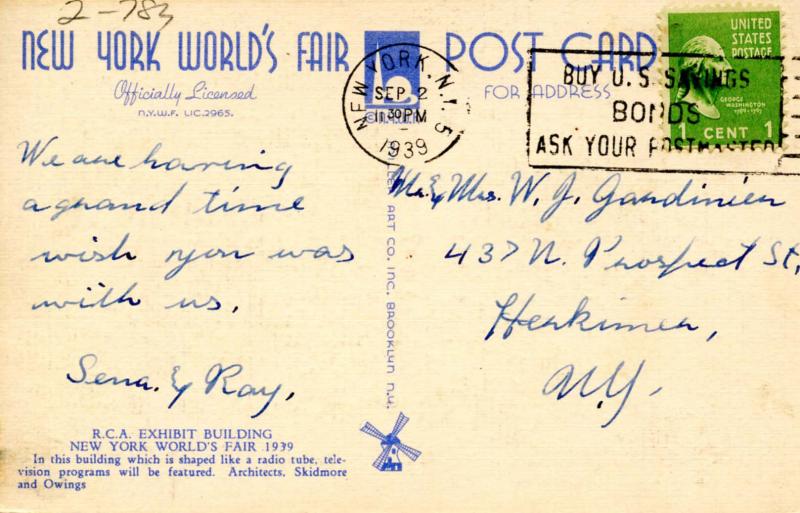 2-783
NEW YORK WORLD'S FAIR
POST CARD
Officially Licensed
N.Y.W.F. LIC.2965.
FOR ADDRESS
NEW YORK, N.Y. 5
SEP 2
11 30 PM
1939
BUY U.S. SAVINGS
BONDS
ASK YOUR POSTMASTER
UNITED
STATES
POSTAGE
GEORGE
WASHINGTON
1 CENT 1
We are having
a grand time
wish you was
with us.
Sena & Ray,
Mr. & Mrs. W. J. Gardinier
437 N. Prospect St,
Herkimer,
N.Y.
ART CO. INC. BROOKLYN N.Y.
R.C.A. EXHIBIT BUILDING
NEW YORK WORLD'S FAIR 1939
In this building which is shaped like a radio tube, tele-
vision programs will be featured. Architects, Skidmore
and Owings